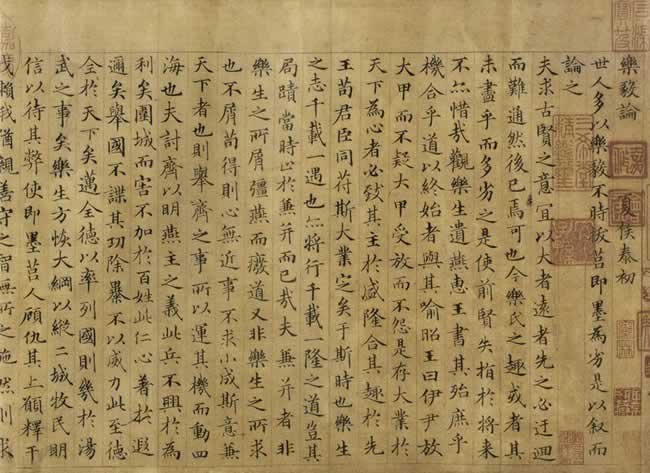 樂毅論 夏侯泰初
世人多以樂毅不時拔莒即墨為劣是以叙而
論之
夫求古賢之意宜以大者遠者先之必迂迴
而難通然後已焉可也今樂氏之趣或者其
未盡乎而多劣之是使前賢失指於將来
不亦惜哉觀樂生遺燕惠王書其殆庶乎
機合乎道以終始者與其喻昭王曰伊尹放
大甲而不疑大甲受放而不怨是存大業於
天下為心者必致其主於盛隆合其趣於先
王苟君臣同苻斯大業定矣于斯時也樂生
之志千載一遇也亦將行千載一隆之道豈其
局蹟當時止於兼并而已哉夫兼并者非
樂生之所屑彊燕而廢道又非樂生之所求
也不屑苟得則心無近事不求小成斯意兼
天下者也則舉齊之事所以運其機而動四
海也夫討齊以明燕主之義此兵不興於為
利矣圍城而害不加於百姓此仁心著於遐
邇矣舉國不謀其功除暴不以威力此至德
全於天下矣邁全德以率列國則幾於湯
武之事矣樂生方恢大綱以縱二城牧民明
信以待其弊使即墨莒人顧仇其上願釋干
戈賴我猶親善守之智無所之施然則求